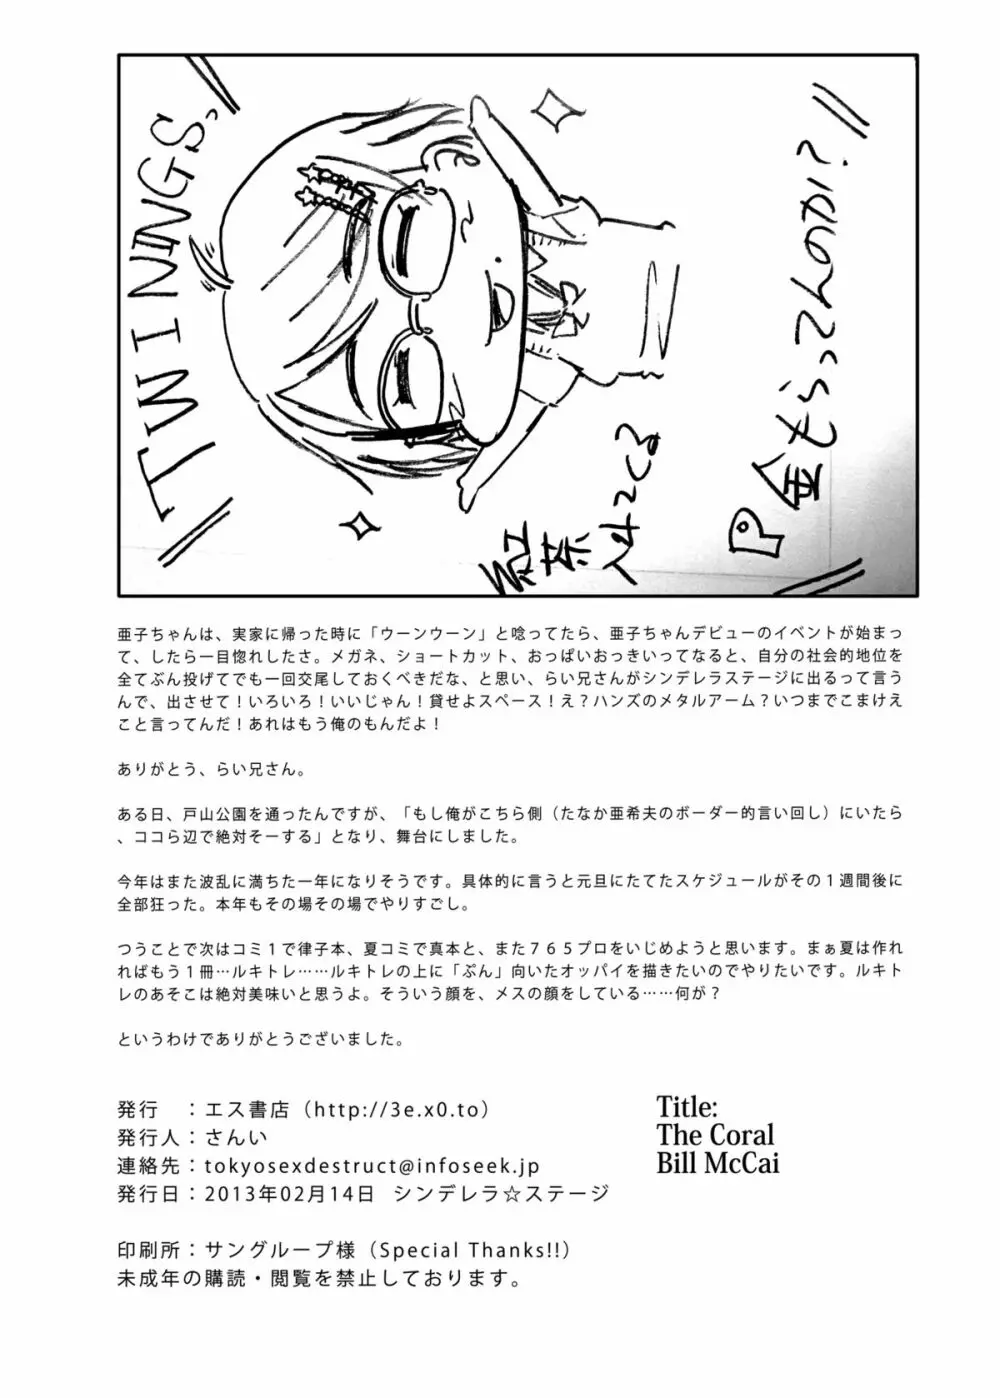 TWININGS
紅茶すてる
P金もらってんのかい?
亜子ちゃんは、実家に帰った時に「ウーンウーン」と唸ってたら、亜子ちゃんデビューのイベントが始まっ
て、したら一目惚れしたさ。メガネ、ショートカット、おっぱいおっきいってなると、自分の社会的地位を
全てぶん投げてでも一回交尾しておくべきだな、と思い、らい兄さんがシンデレラステージに出るって言う
んで、出させて！いろいろ！いいじゃん！貸せよスペース！え？ハンズのメタルアーム？いつまでこまけえ
こと言ってんだ！あれはもう俺のもんだよ！
ありがとう、らい兄さん。
ある日、戸山公園を通ったんですが、「もし俺がこちら側（たなか亜希夫のボーダー的言い回し）にいたら
、ココら辺で絶対そーする」となり、舞台にしました。
今年はまた波乱に満ちた一年になりそうです。具体的に言うと元旦にたてたスケジュールがその１週間後に
全部狂った。本年もその場その場でやりすごし。
つうことで次はコミ１で律子本、夏コミで真本と、また７６５プロをいじめようと思います。まぁ夏は作れ
ればもう１冊…ルキトレ……ルキトレの上に「ぷん」向いたオッパイを描きたいのでやりたいです。ルキト
レのあそこは絶対美味いと思うよ。そういう顔を、メスの顔をしている……何が？
というわけでありがとうございました。
発行　：エス書店（http://3e.x0.to）
発行人：さんい
連絡先：tokyosexdestruct@infoseek.jp
発行日：2013年02月14日 シンデレラ☆ステージ
印刷所：サングループ様（Special Thanks!!）
未成年の購読・閲覧を禁止しております。
Title:
The Coral
Bill McCai